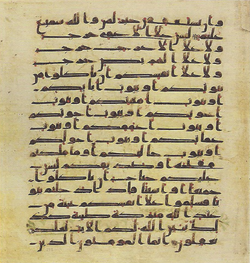 وان يستعففن خير لهن والله سميع
عليم ليس على الاعمى حرج
ولا على الاعرج حرج
ولا على المريض حرج
ولا على انفسكم ان تاكلوا من
بيوتكم او بيوت ابائكم او
بيوت امهتكم او بيوت
اخونكم او بيوت اخوتكم
او بيوت اعممكم او بيوت
عمتكم او بيوت اخولكم
او بيوت خلتكم او ما ملكتم
مفتحه او صديقكم ليس
عليكم جناح ان تاكلوا
جميعا او اشتاتا فاذا دخلتم بيو
تا فسلموا على انفسكم تحية من
عند الله مبركة طيبة كذ
لك يبين الله لكم الايت لعلكم
تعقلون انما المومنون الذين